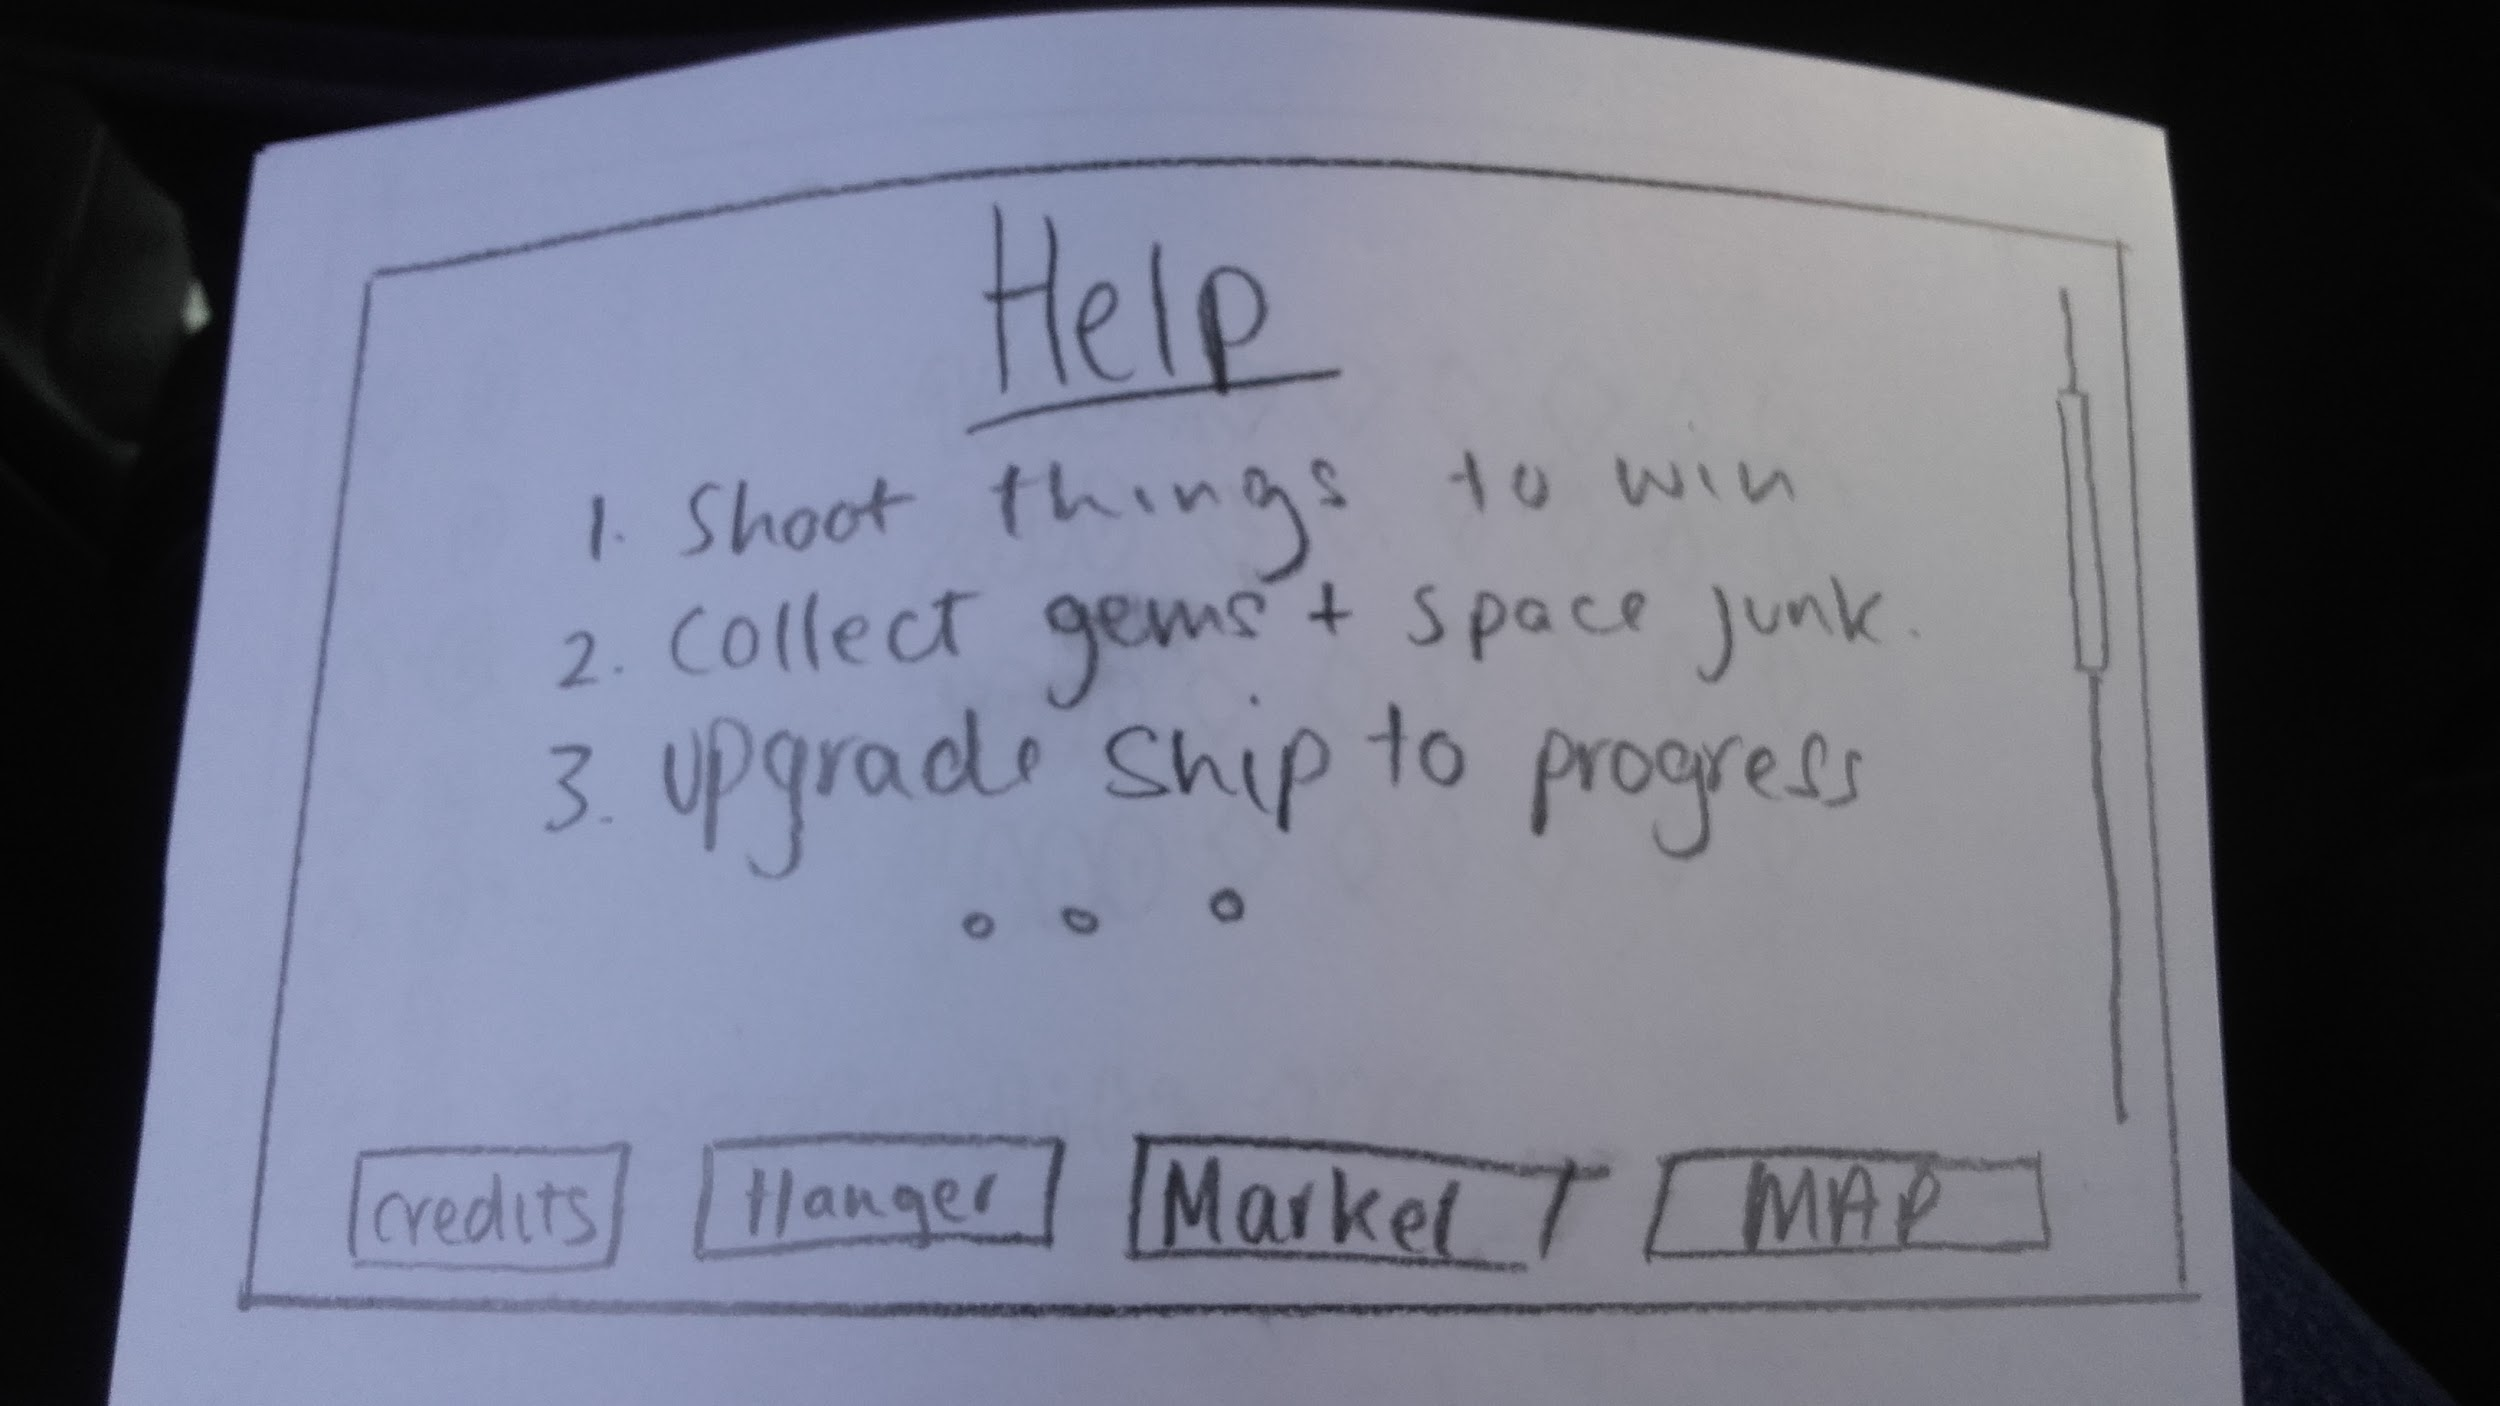 Help
1. Shoot things to win
2. Collect gems + space junk.
3. Upgrade ship to progress
. . .
credits Hanger Market MAP